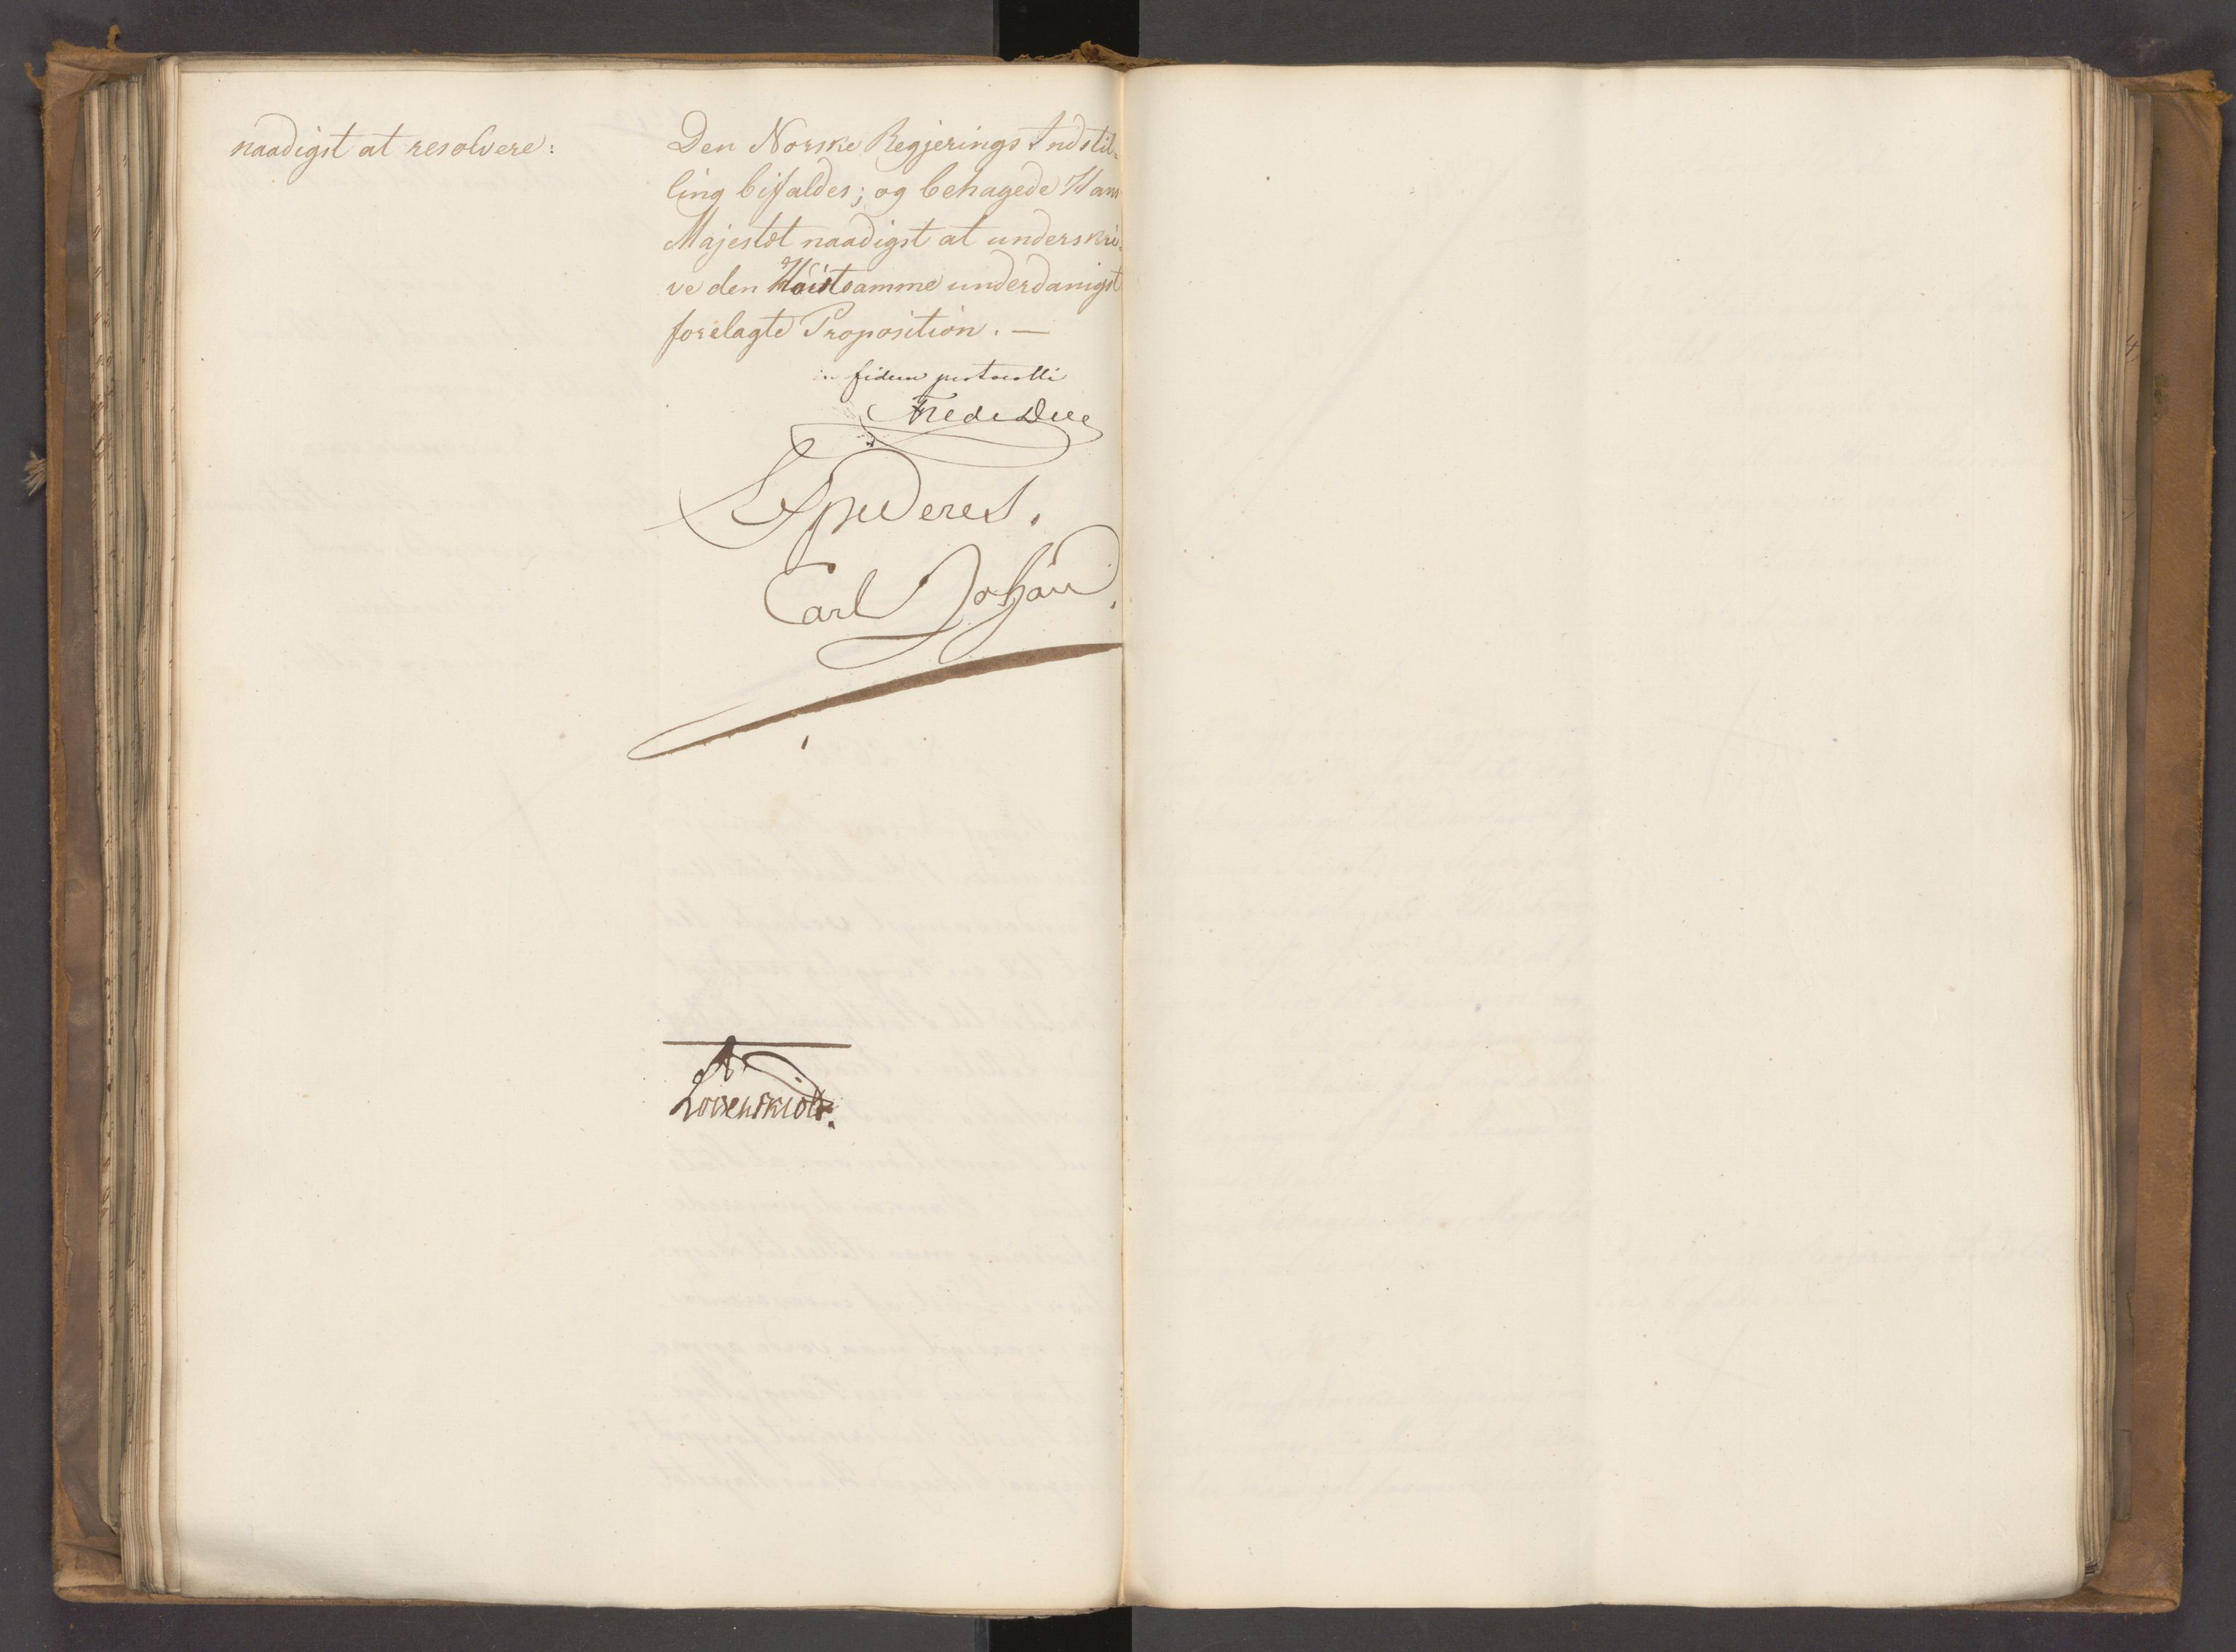 naadigst at resolvere:
Den Norske Regjerings Indstil-
ling bifaldes; og behagede Hans
Majestæt naadigst at underskri-
ve den Høistsamme underdanigst
forelagte Proposition. —
in fidem protocolli
Fred. Due
Expederes.
Carl Johan.
Løvenskiold.